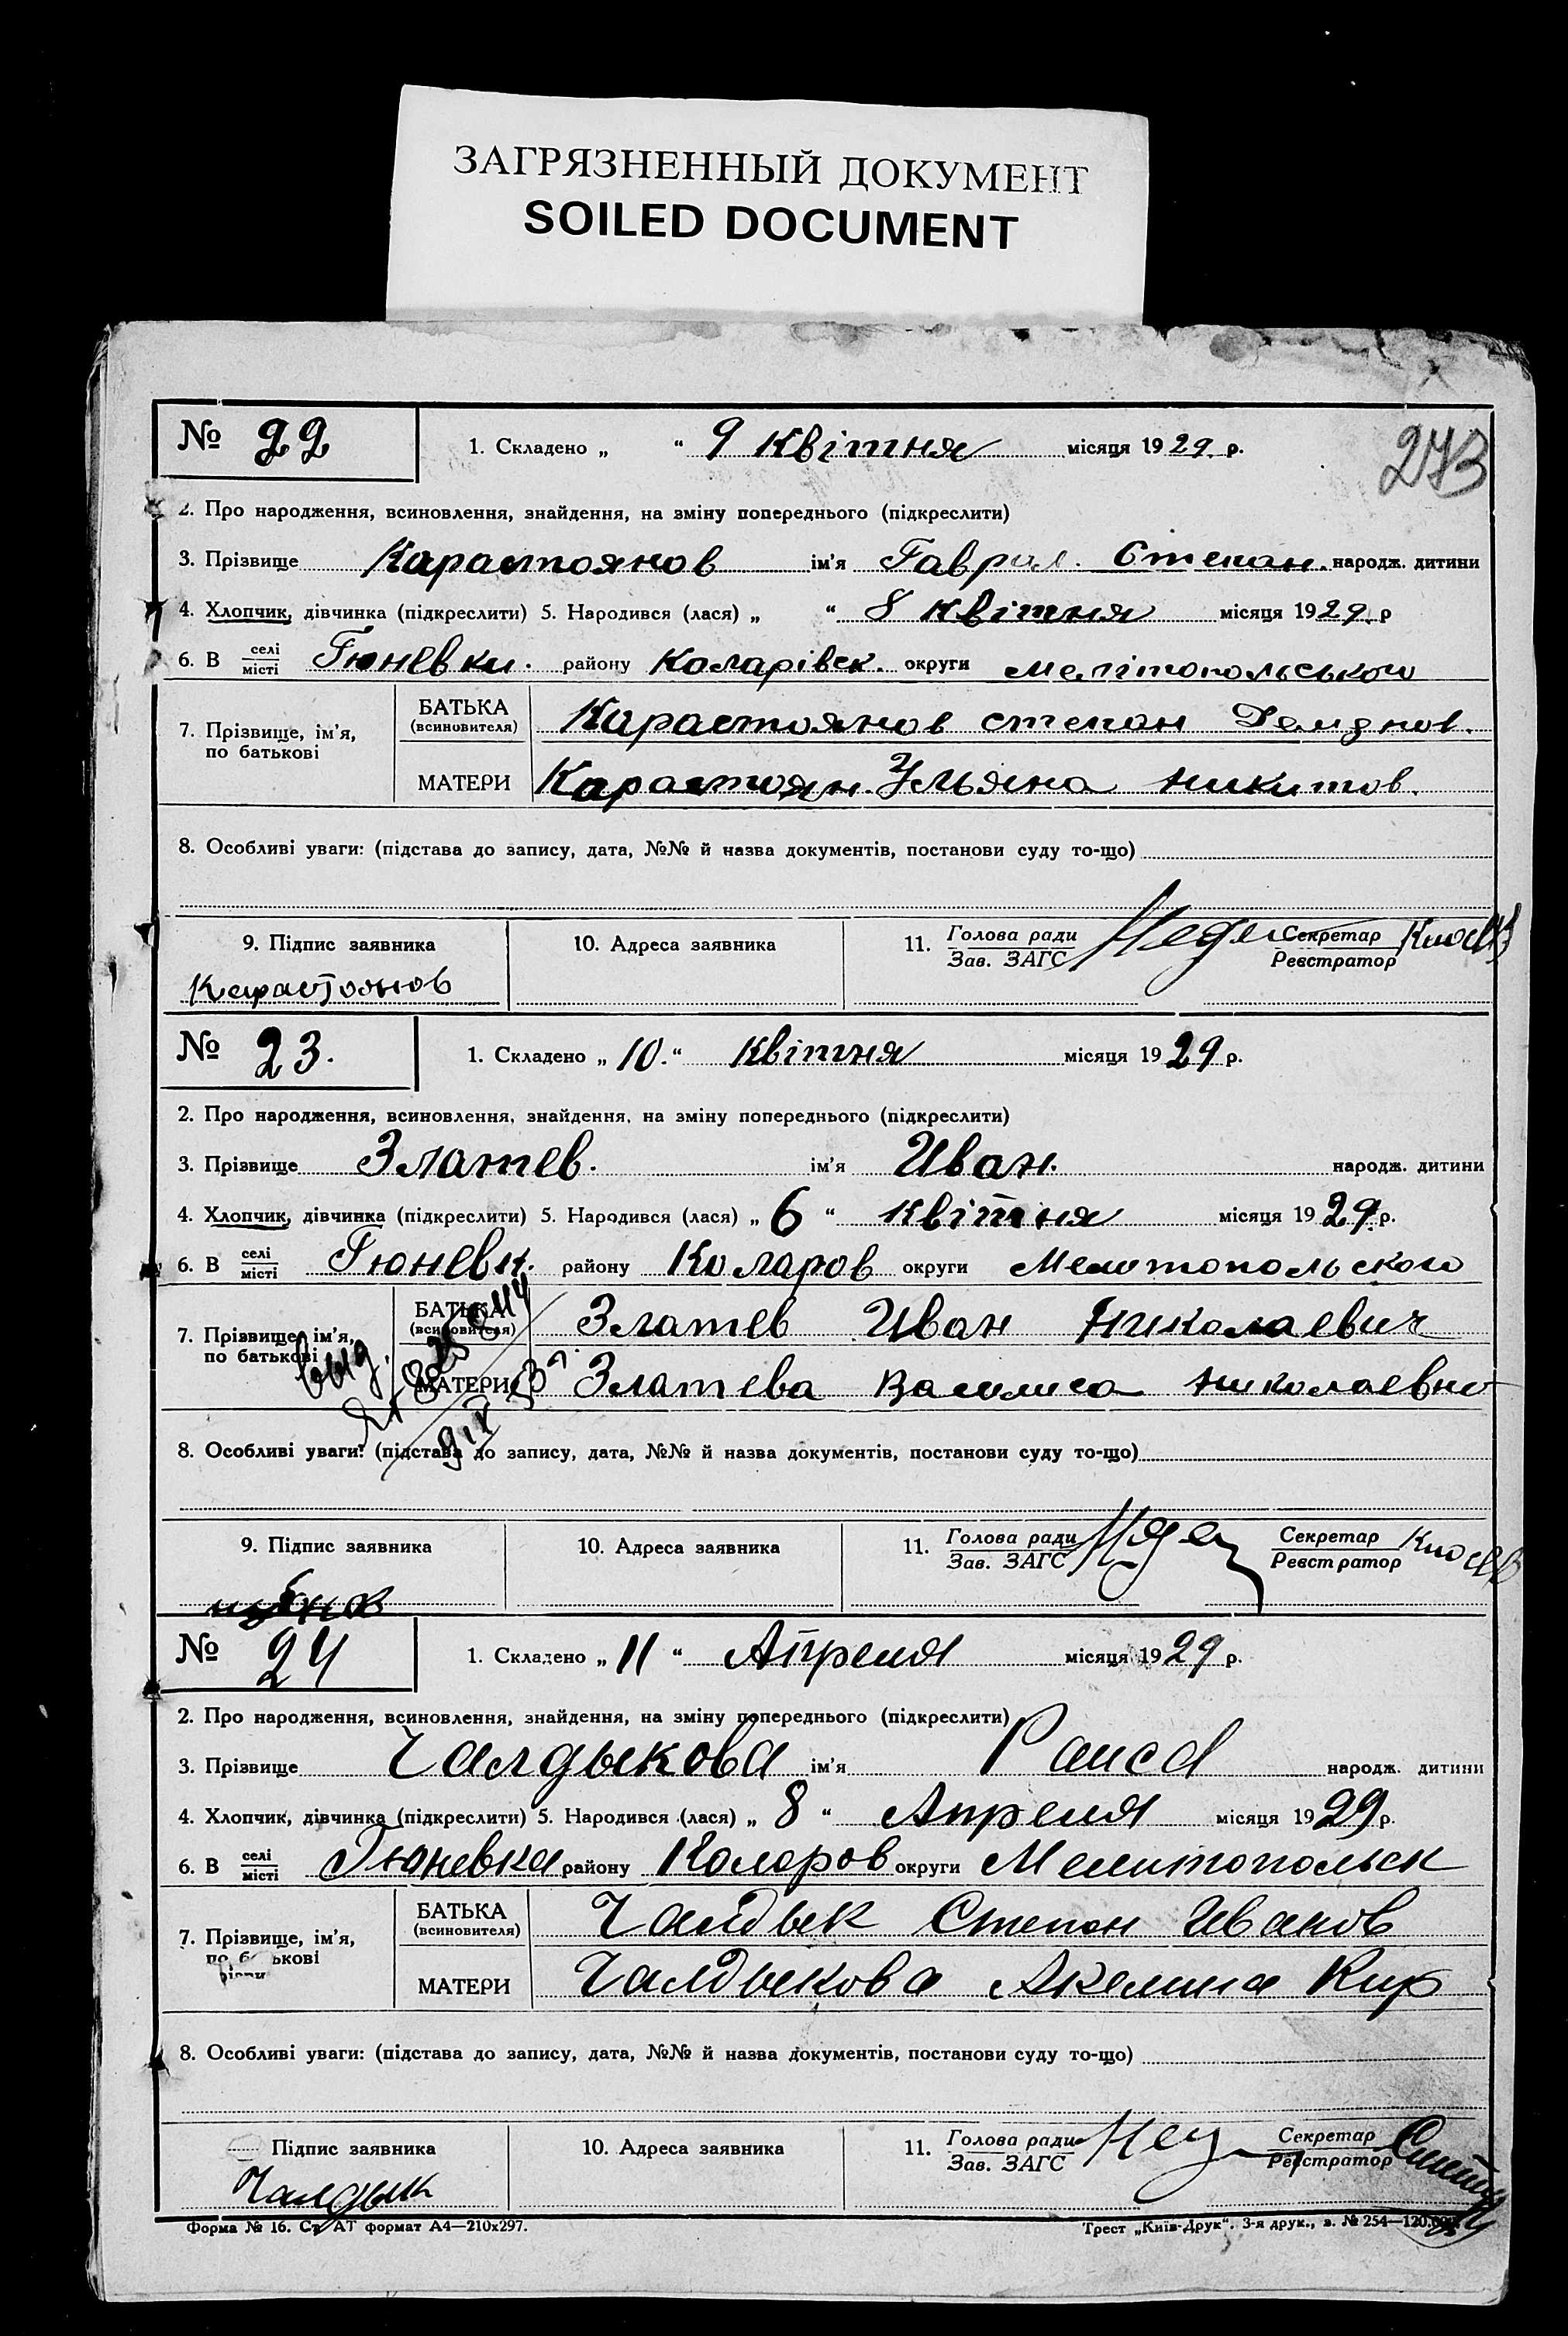 ЗАГРЯЗНЕННЫЙ ДОКУМЕНТ
SOILED DOCUMENT
273
№ 22 1. Складено „ “ 9 Квітня місяця 1929. р.
2. Про народження, всиновлення, знайдення, на зміну попереднього (підкреслити)
3. Прізвище Карастоянов ім'я Гаврил. Степан. народж. дитини
4. Хлопчик, дівчинка (підкреслити) 5. Народився (лася) „ “ 8 Квітня місяця 1929. р
6. В селі/місті Гюневки. району Коларівск. округи Мелітопольського
7. Прізвище, ім'я, по батькові
БАТЬКА (всиновителя) Карастоянов степан
МАТЕРИ Карастоян. Ульяна Никитов.
8. Особливі уваги: (підстава до запису, дата, №№ й назва документів, постанови суду то-що)
9. Підпис заявника 10. Адреса заявника 11. Голова ради/Зав. ЗАГС Секретар/Реєстратор
Карастоянов
№ 23. 1. Складено „ 10. “ Квітня місяця 1929 р.
2. Про народження, всиновлення, знайдення, на зміну попереднього (підкреслити)
3. Прізвище Златев. ім'я Иван. народж. дитини
4. Хлопчик, дівчинка (підкреслити) 5. Народився (лася) „ 6 “ квітня місяця 1929. р.
6. В селі/місті Гюневк. району Коларов округи Мелитопольского
7. Прізвище, ім'я, по батькові
БАТЬКА (всиновителя) Златев Иван Николаевич
МАТЕРИ Златева Василиса Николаевна
выд.
8. Особливі уваги: (підстава до запису, дата, №№ й назва документів, постанови суду то-що)
9. Підпис заявника 10. Адреса заявника 11. Голова ради/Зав. ЗАГС Секретар/Реєстратор
№ 24 1. Складено „ 11 “ Апреля місяця 1929 р.
2. Про народження, всиновлення, знайдення, на зміну попереднього (підкреслити)
3. Прізвище Чалдыкова ім'я Раиса народж. дитини
4. Хлопчик, дівчинка (підкреслити) 5. Народився (лася) „ 8 “ Апреля місяця 1929 р.
6. В селі/місті Гюневка району Коларов округи Мелитопольск
7. Прізвище, ім'я,
БАТЬКА (всиновителя) Чалдык Степан Иванов
МАТЕРИ Чалдыкова Акелина Кир
8. Особливі уваги: (підстава до запису, дата, №№ й назва документів, постанови суду то-що)
Підпис заявника 10. Адреса заявника 11. Голова ради/Зав. ЗАГС Секретар/Реєстратор
Чалдык
Форма № 16. Ст. АТ формат А4—210х297. Трест „Київ-Друк“. 3-я друк., з. № 254—120.000